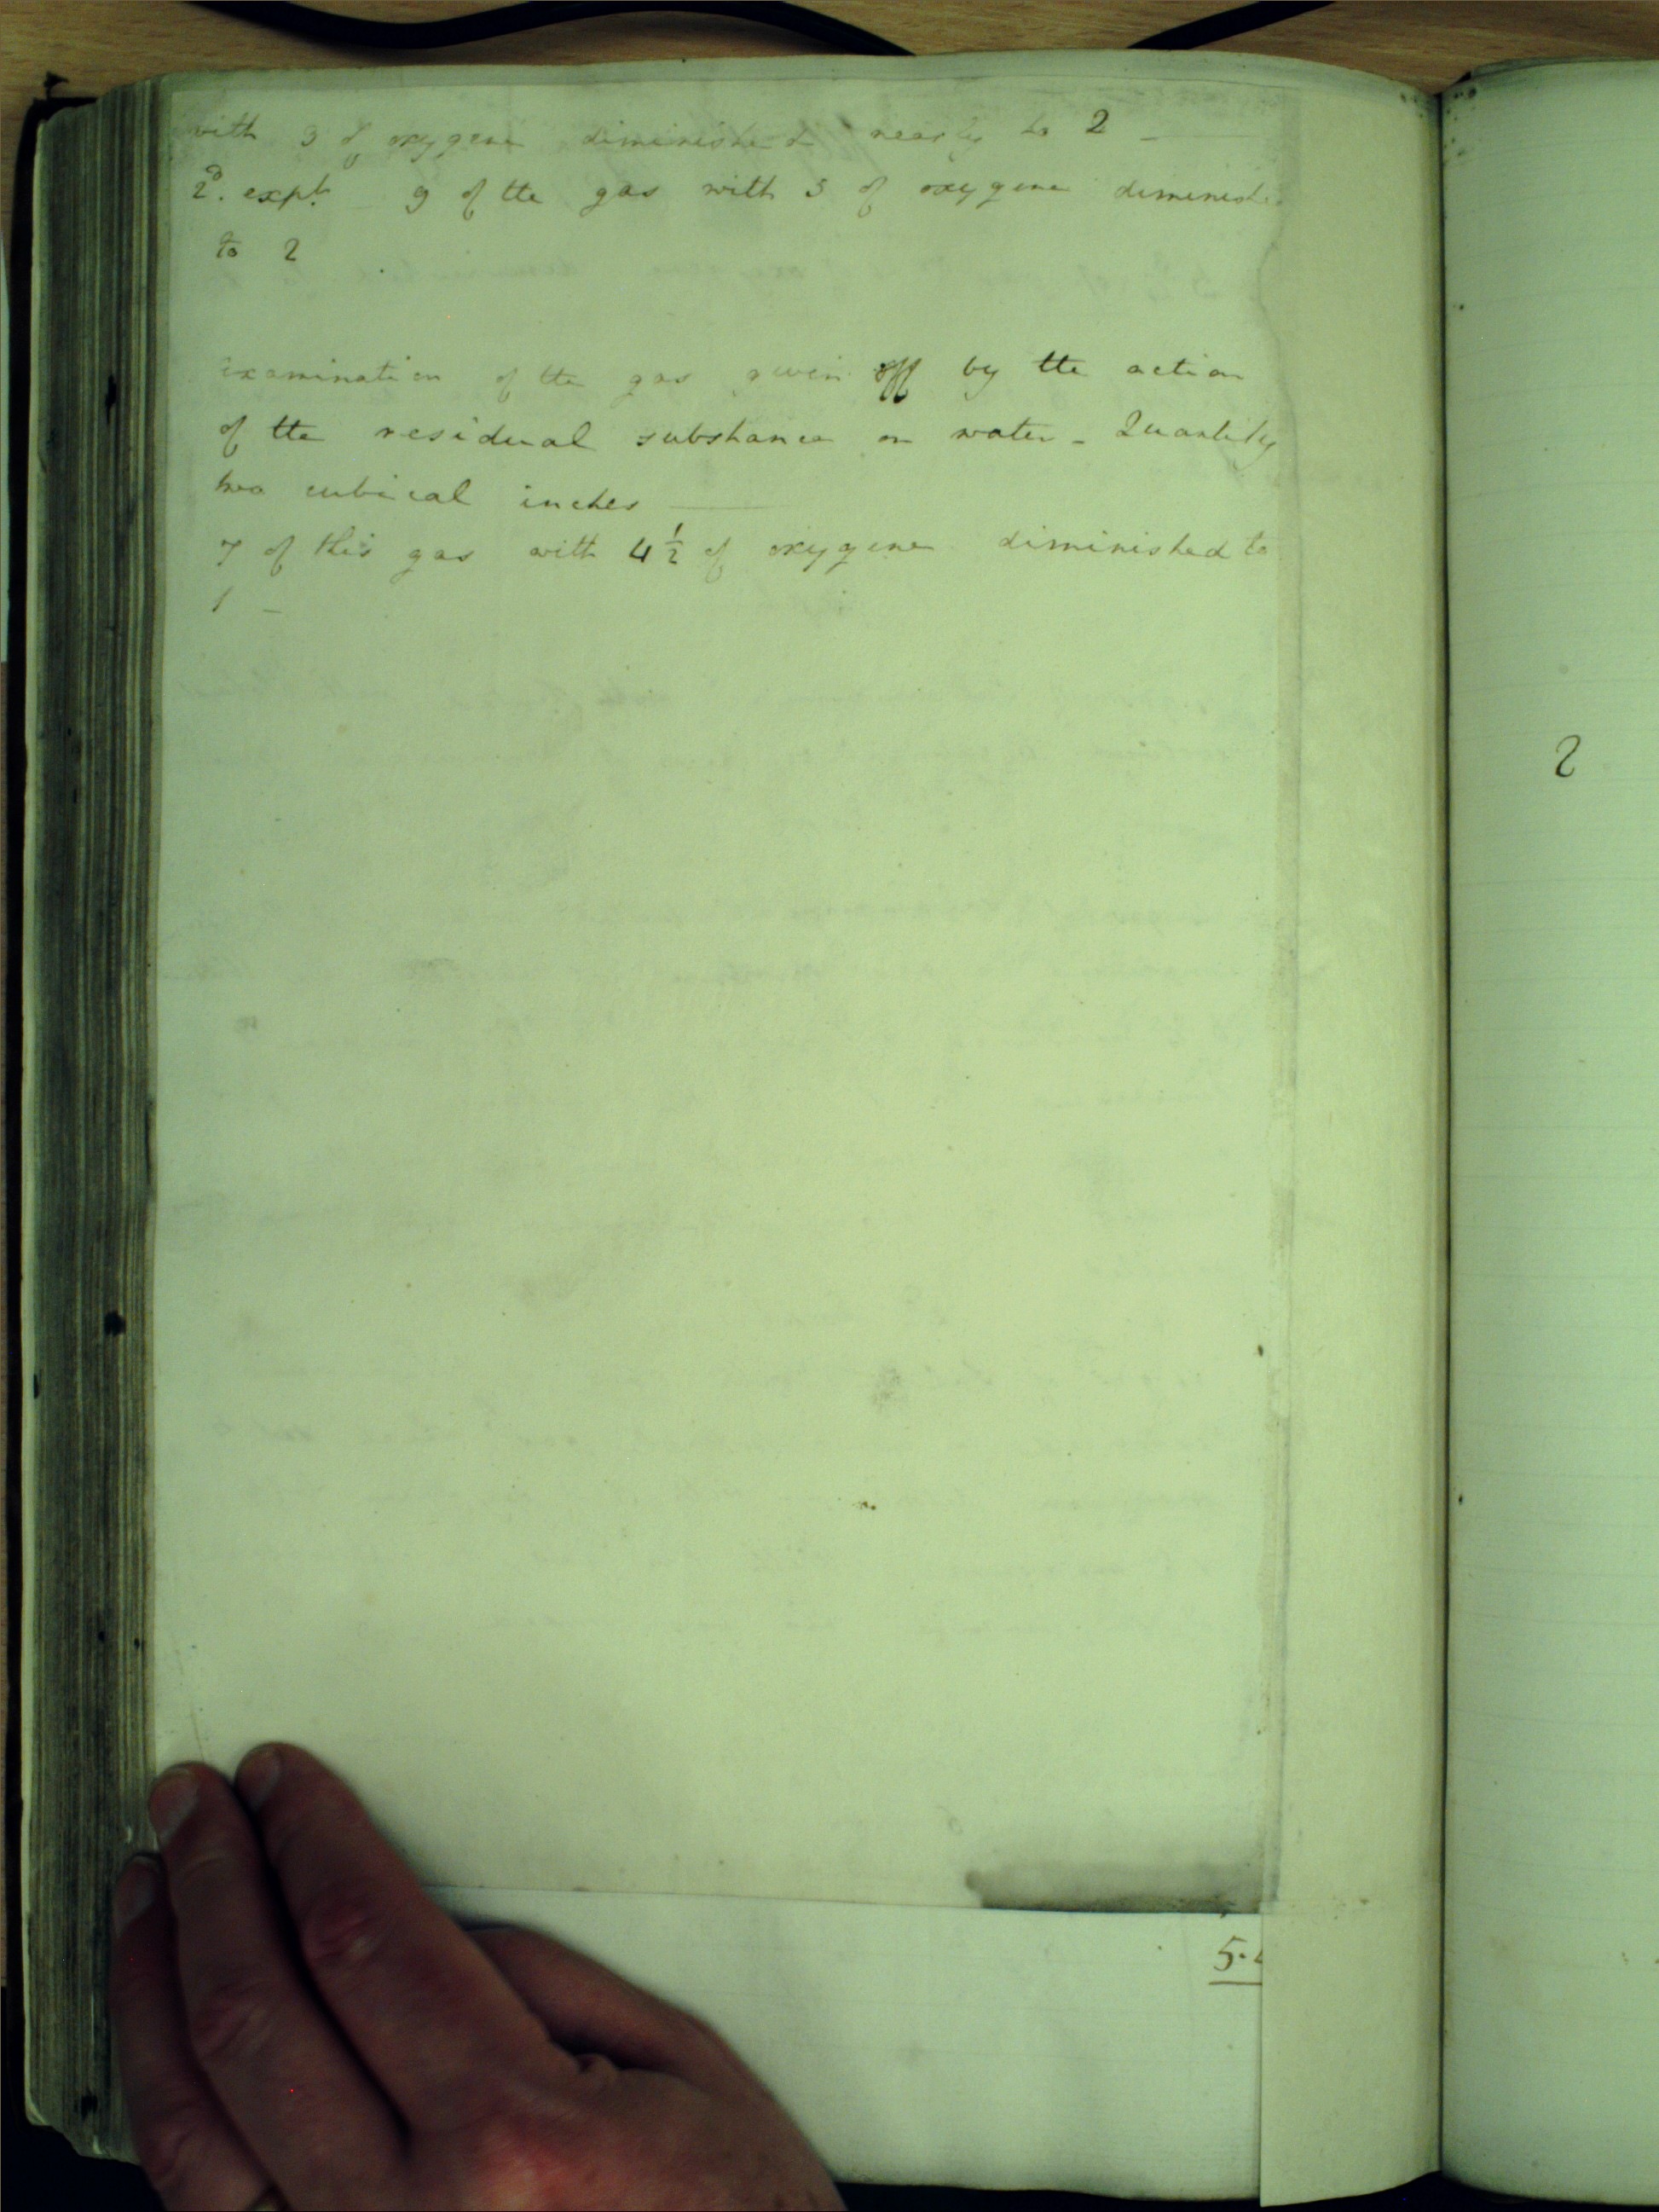 with 3 of oxygene diminished nearly to 2 —
2d. expt. 9 of the gas with 5 of oxygene diminish
to 2
examination of the gas given off by the action
of the residual substance on water - Quantity
two cubical inches —
7 of this gas with 4 1/2 of oxygene diminished to
1 -
2
5.